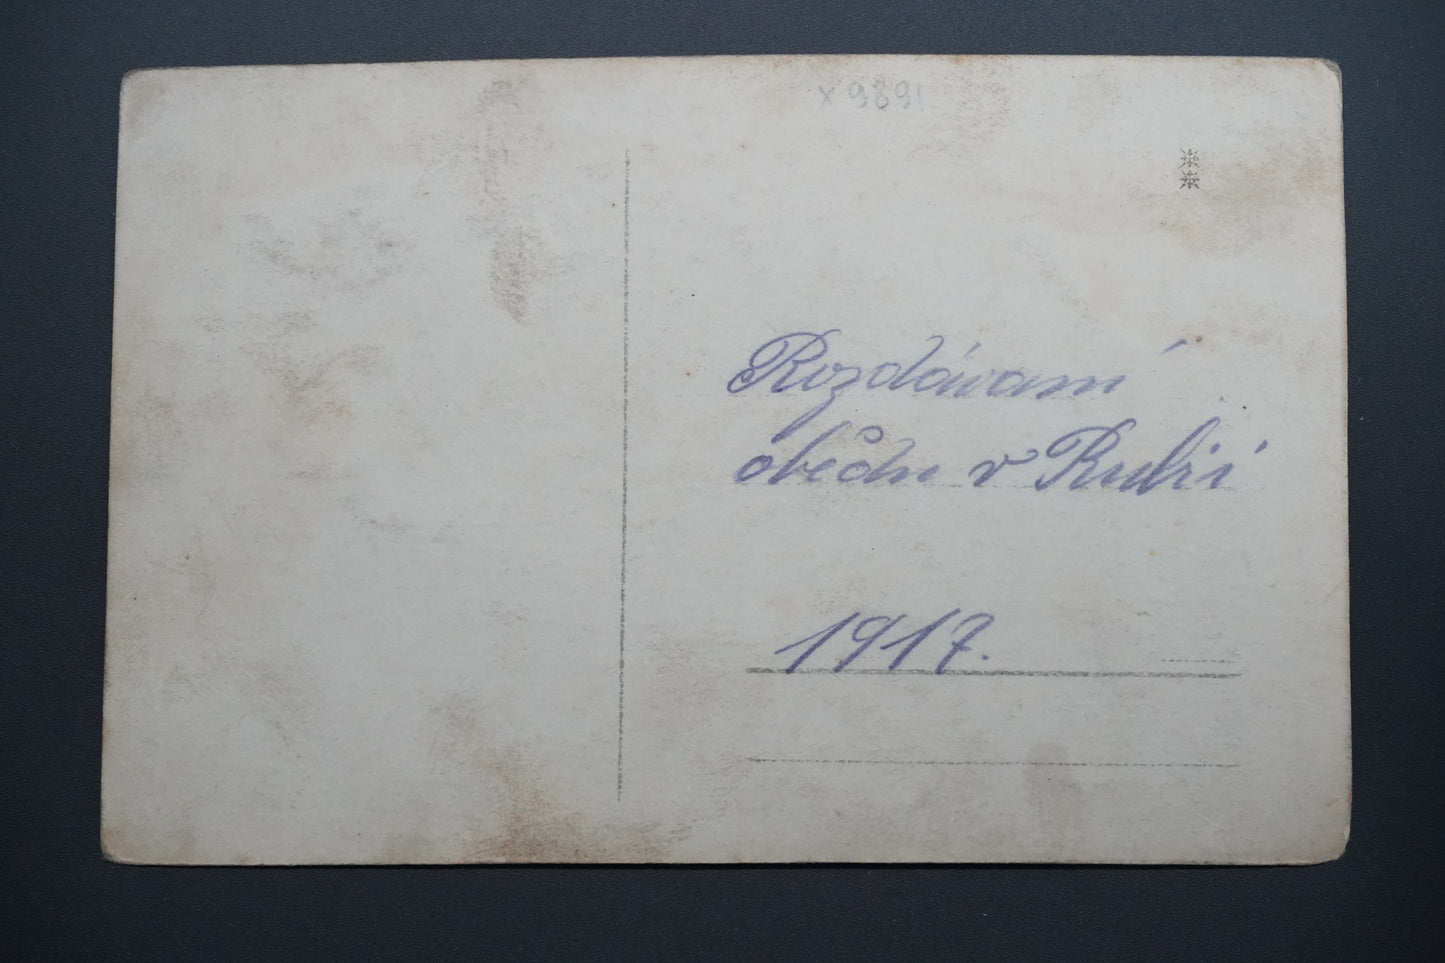 x 9891
Rozdávaní
obědu v Rubii
1917.